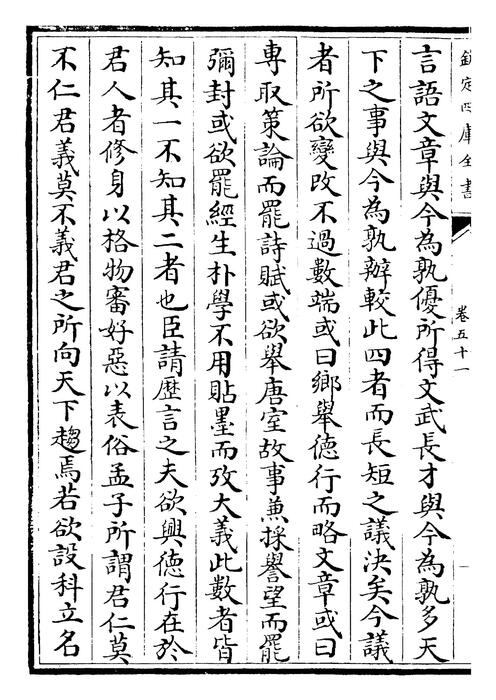 欽定四庫全書
卷五十一
言語文章與今為孰優所得文武長才與今為孰多天
下之事與今為孰辦較此四者而長短之議決矣今議
者所欲變改不過數端或曰鄉舉德行而略文章或曰
専取策論而罷詩賦或欲舉唐室故事兼採譽望而罷
彌封或欲罷經生朴學不用貼墨而攷大義此數者皆
知其一不知其二者也臣請歴言之夫欲興德行在於
君人者修身以格物審好惡以表俗孟子所謂君仁莫
不仁君義莫不義君之所向天下趨焉若欲設科立名